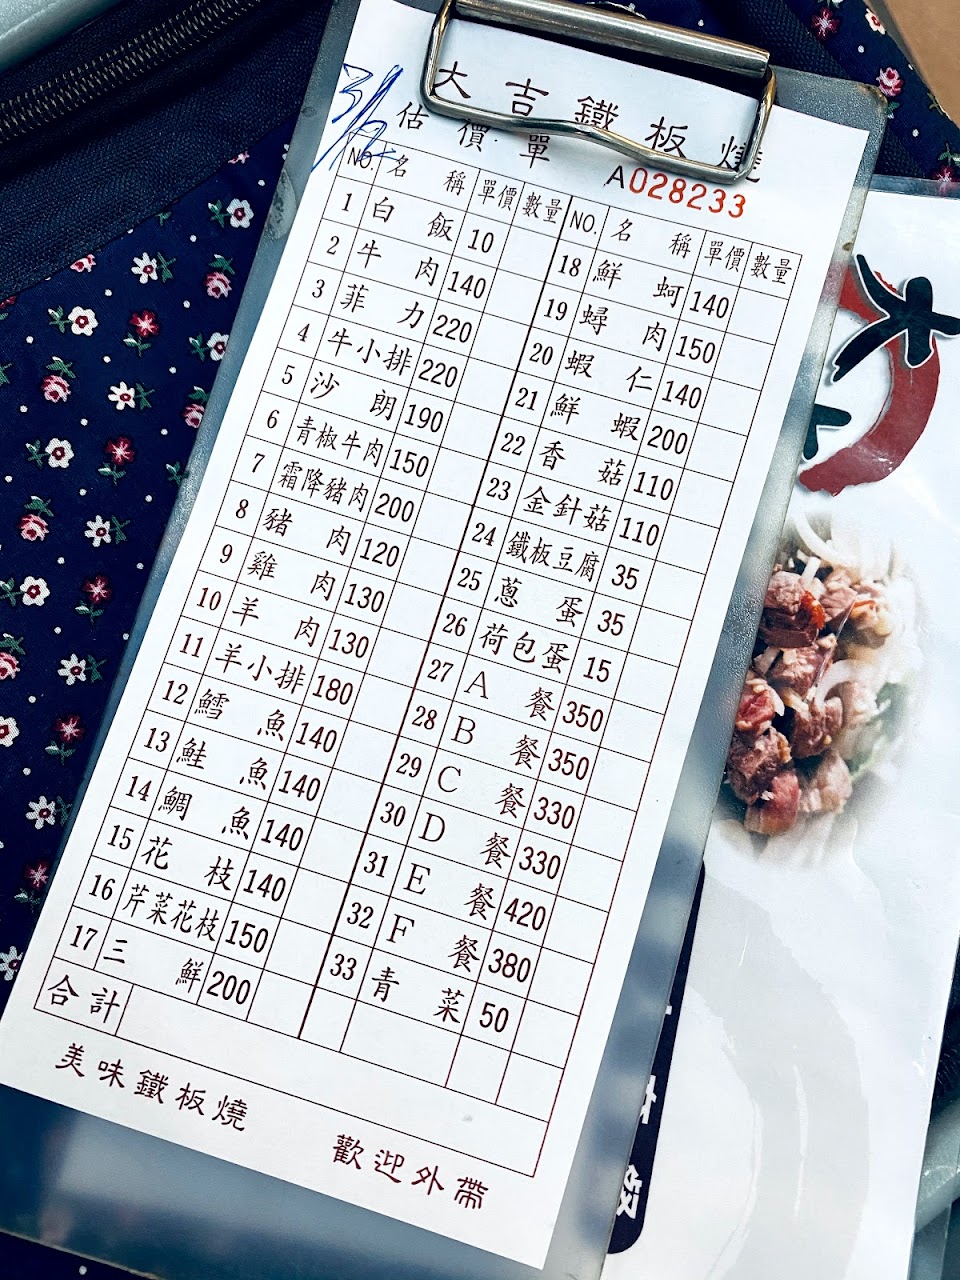 大吉鐵板燒
估價單
A028233
NO. 名稱 單價 數量
1 白飯 10
2 牛肉 140
3 菲力 220
4 牛小排 220
5 沙朗 190
6 青椒牛肉 150
7 霜降豬肉 200
8 豬肉 120
9 雞肉 130
10 羊肉 130
11 羊小排 180
12 鱈魚 140
13 鮭魚 140
14 鯛魚 140
15 花枝 140
16 芹菜花枝 150
17 三鮮 200
合計
NO. 名稱 單價 數量
18 鮮蚵 140
19 蟳肉 150
20 蝦仁 140
21 鮮蝦 200
22 香菇 110
23 金針菇 110
24 鐵板豆腐 35
25 蔥蛋 35
26 荷包蛋 15
27 A餐 350
28 B餐 350
29 C餐 330
30 D餐 330
31 E餐 420
32 F餐 380
33 青菜 50
美味鐵板燒
歡迎外帶
大